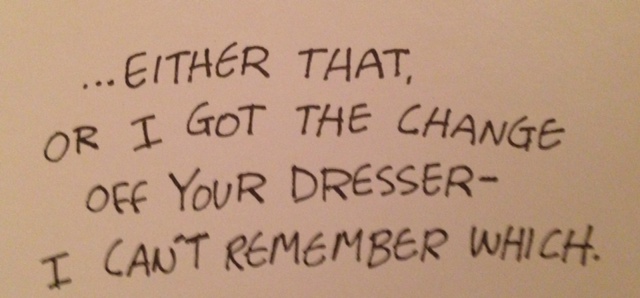 ...EITHER THAT,
OR I GOT THE CHANGE
OFF YOUR DRESSER-
I CAN'T REMEMBER WHICH.